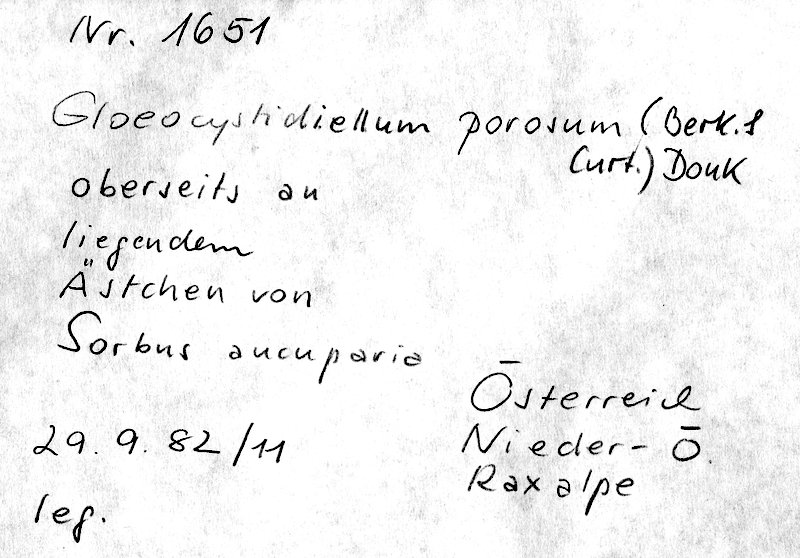 Nr. 1651
Gloeocystidiellum porosum (Berk. &
Curt.) Donk
oberseits an
liegendem
Ästchen von
Sorbus aucuparia
Österreich
Nieder-Ö.
Raxalpe
29. 9. 82/11
leg.